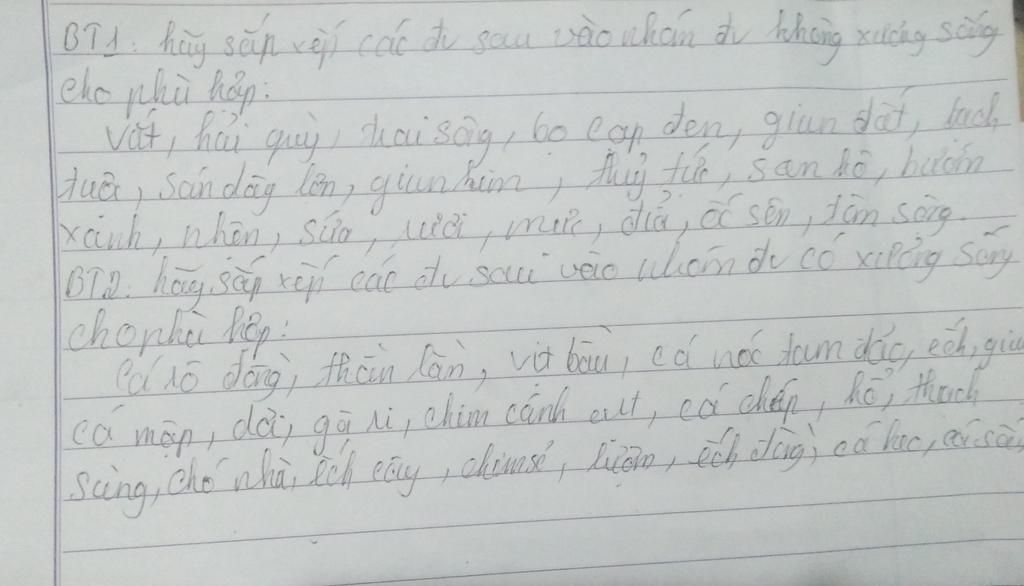 BT1: hãy sắp xếp các đv sau vào nhóm đv không xương sống
cho phù hợp:
Vắt, hải quỳ, trai sông, bọ cạp đen, giun đất, bạch
tuộc, sán dây lợn, giun kim, thuỷ tức, san hô, bướm
xanh, nhện, sứa, rươi, mực, đỉa, ốc sên, tôm sông.
BT2: hãy sắp xếp các đv sau vào nhóm đv có xương sống
cho phù hợp:
Cá rô đồng, thằn lằn, vịt bầu, cá nóc tam đảo, ếch,
cá mập, dơi, gà ri, chim cánh cụt, cá chép, hổ, thạch
sùng, chó nhà, ếch cây, chim sẻ, lươn, ếch đồng, cá heo,